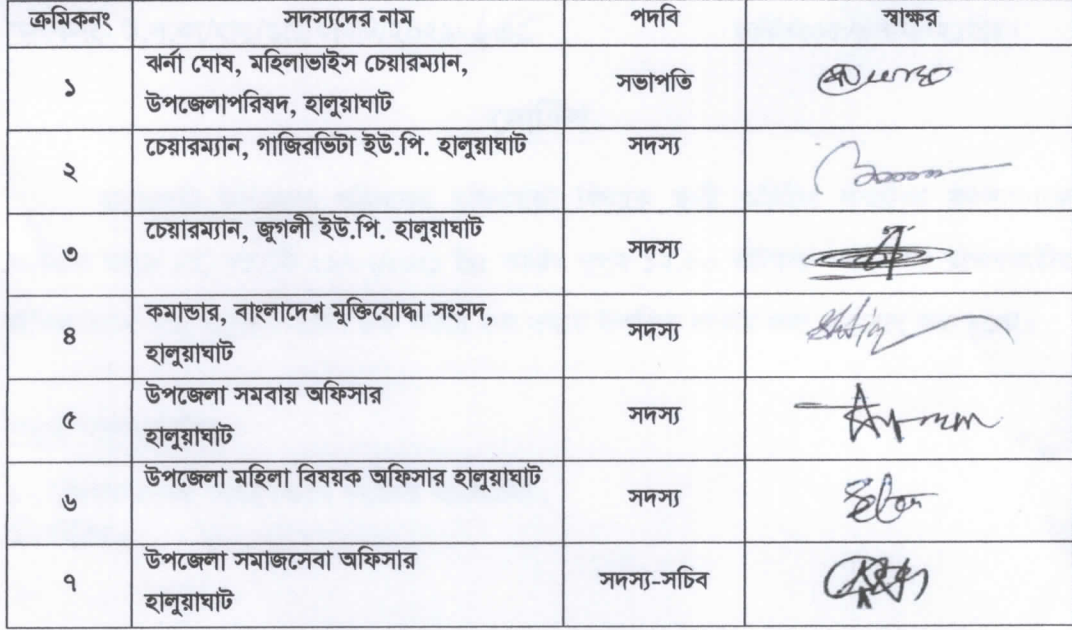 ক্রমিকনং সদস্যদের নাম পদবি স্বাক্ষর
১ ঝর্না ঘোষ, মহিলাভাইস চেয়ারম্যান, সভাপতি
উপজেলাপরিষদ, হালুয়াঘাট
২ চেয়ারম্যান, গাজিরভিটা ইউ.পি. হালুয়াঘাট সদস্য
৩ চেয়ারম্যান, জুগলী ইউ.পি. হালুয়াঘাট সদস্য
৪ কমান্ডার, বাংলাদেশ মুক্তিযোদ্ধা সংসদ, সদস্য
হালুয়াঘাট
৫ উপজেলা সমবায় অফিসার সদস্য
হালুয়াঘাট
৬ উপজেলা মহিলা বিষয়ক অফিসার হালুয়াঘাট সদস্য
৭ উপজেলা সমাজসেবা অফিসার সদস্য-সচিব
হালুয়াঘাট